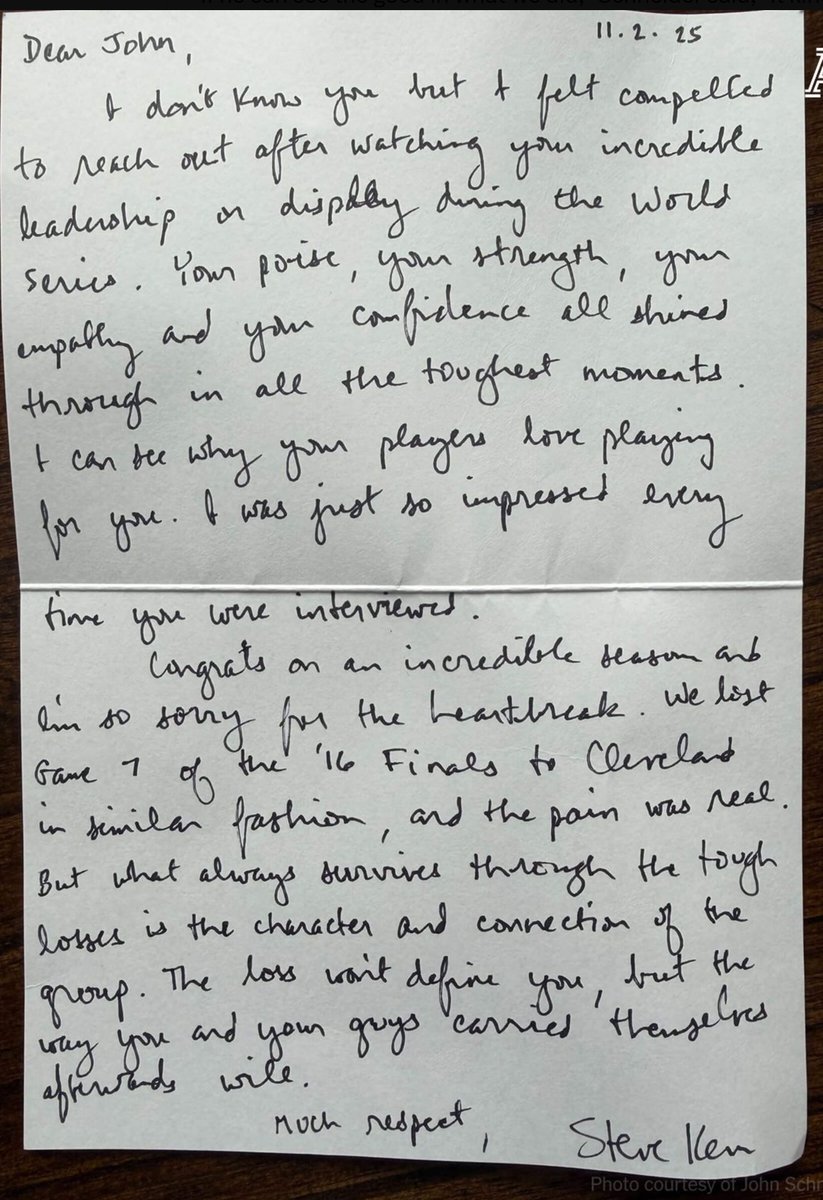 11.2.25
Dear John,
I don't know you but I felt compelled
to reach out after watching your incredible
leadership on display during the World
Series. Your poise, your strength, your
empathy and your confidence all shined
through in all the toughest moments.
I can see why your players love playing
for you. I was just so impressed every
time you were interviewed.
Congrats on an incredible season and
I'm so sorry for the heartbreak. We lost
Game 7 of the '16 Finals to Cleveland
in similar fashion, and the pain was real.
But what always survives through the tough
losses is the character and connection of the
group. The loss won't define you, but the
way you and your guys carried themselves
afterwards will.
Much respect,
Steve Kerr
Photo courtesy of John Schn